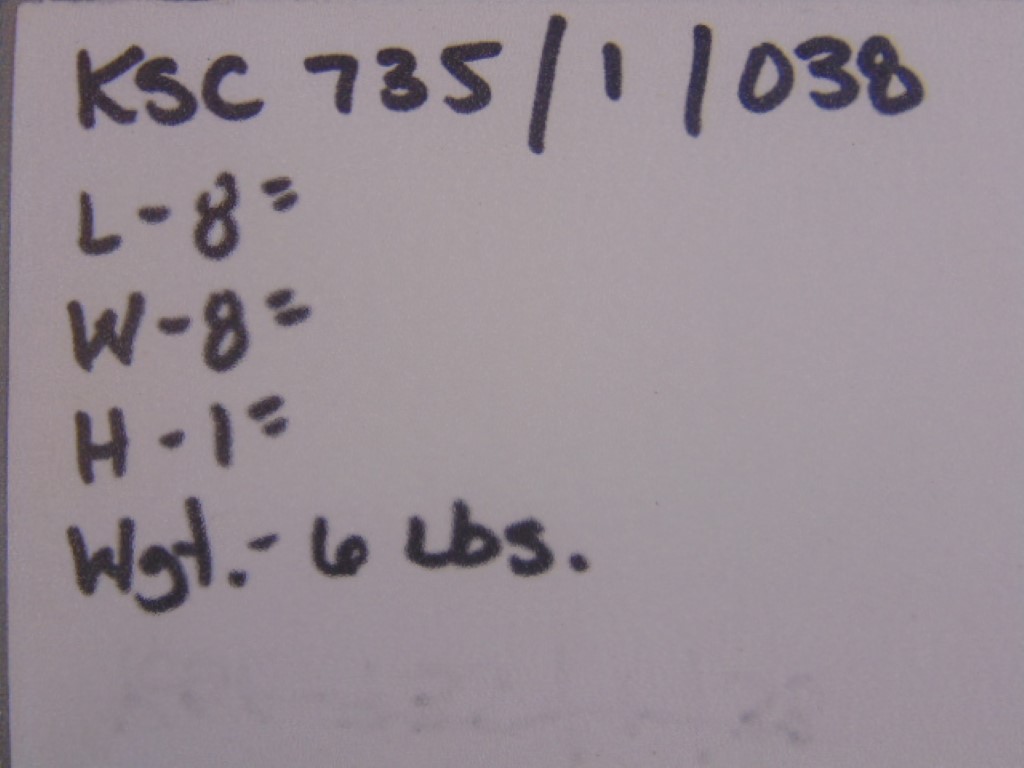 KSC 735/1/038
L - 8"
W - 8"
H - 1"
Wgt. - 6 Lbs.